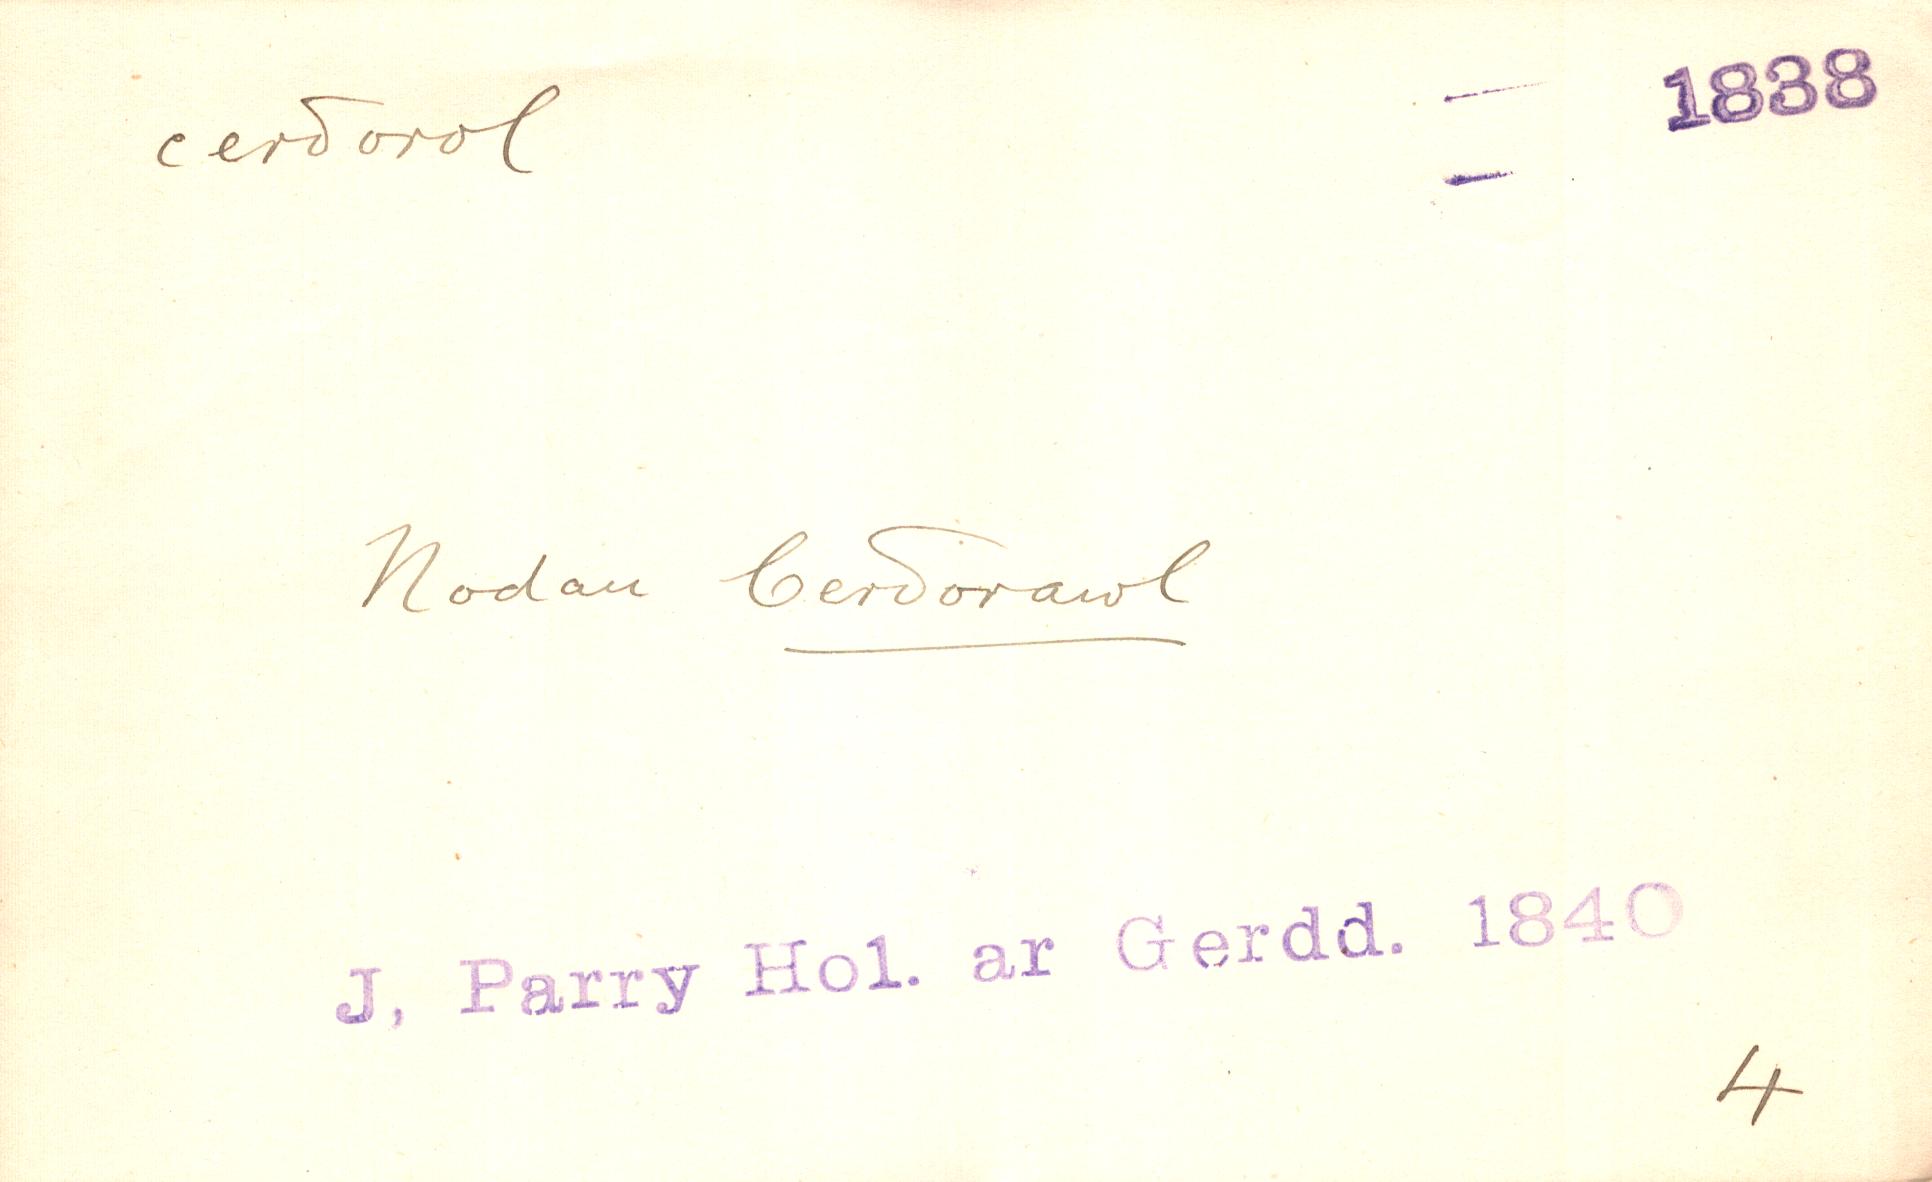 cerðorol 1838
Nodau Cerðorawl
J. Parry Hol. ar Gerdd. 1840
4